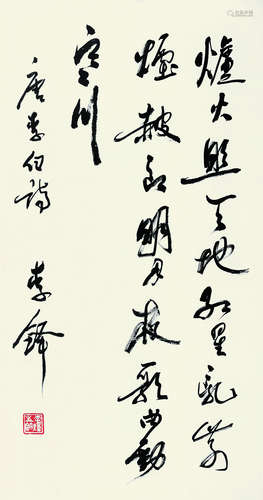 爐火照天地紅星亂紫
煙赧郎明月夜歌曲動
寒川
唐李白詩
李